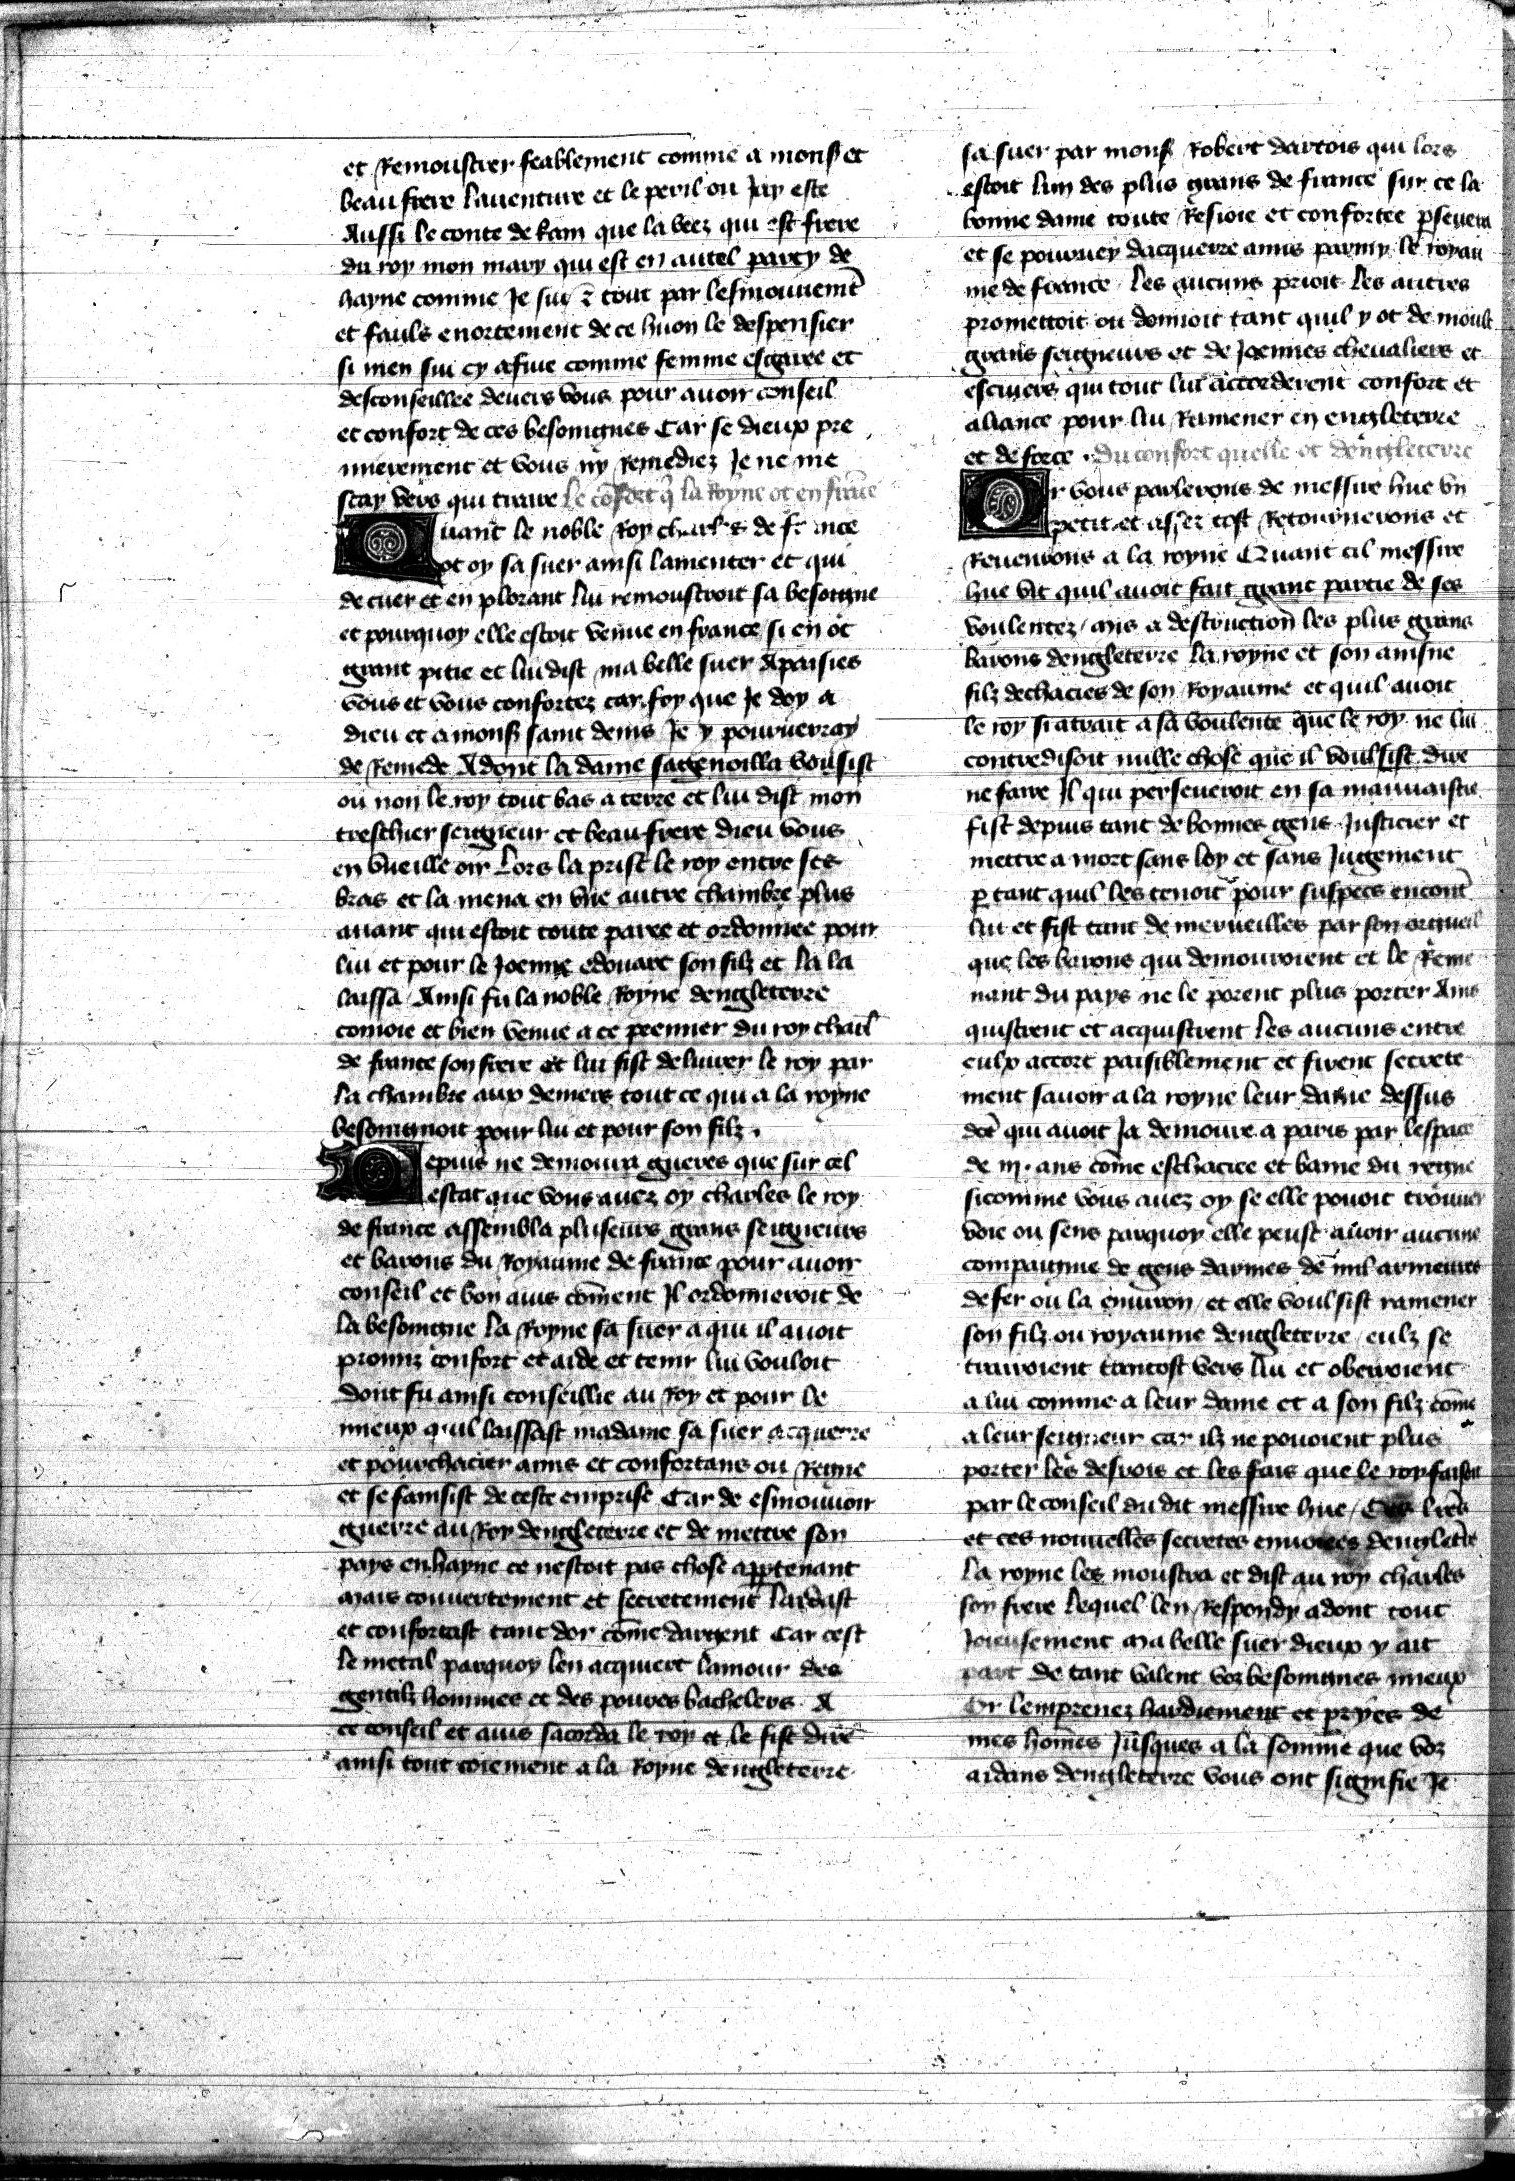 et Remoustrer feablement comme a monsr et
beau frere lauenture et le peril ou Jay este
Aussi le conte de kam que la veez qui est frere
du roy mon mary qui est en autel party de
hayne comme Je sui et tout par lesmouuemt
et fauls enortement de ce huon le despensier
si men sui cy afuie comme femme esgaree et
desconseillee deuers vous pour auoir conseil
et confort de ces besoingnes Car se dieux pre
mierement et vous ny Remediez Je ne me
scay vers qui traire le cõfort q̃ la Royne ot en frãce
Quant le noble Roy charles de france
ot oy sa suer ainsi lamenter et qui
de cuer et en plorant lui remoustroit sa besongne
et pourquoy elle estoit venue en france si en ot
grant pitie et lui dist ma belle suer Apaisies
vous et vous confortez car foy que Je doy a
dieu et a monsr saint denis Je y pourueray
de Remede Adont la dame sagenoilla voulsist
ou non le roy tout bas a terre et lui dist mon
treschier seigneur et beau frere dieu vous
en vueille oir Lors la prist le roy entre ses
bras et la mena en vne autre chambre plus
auant qui estoit toute paree et ordonnee pour
lui et pour le Joenne edouart son filz et la la
laissa Ainsi fu la noble Royne dengleterre
conioie et bien venue a ce premier du roy charl
de france son frere et lui fist deliurer le roy par
la chambre aux deniers tout ce qui a la royne
besoingnoit pour lui et pour son filz .
Depuis ne demoura gueres que sur cel
estat que vous auez oy charles le roy
de france assembla pluseurs grans seigneurs
et barons du Royaume de france pour auoir
conseil et bon auis cõment Il ordonneroit de
la besoingne la Royne sa suer a qui il auoit
promiz confort et aide et tenir lui vouloit
dont fu ainsi conseillie au Roy et pour le
mieux quil laissast madame sa suer acquerre
et pourchacier amis et confortans ou Reime
et se fainsist de ceste emprise Car de esmouuoir
guerre au Roy dengleterre et de mettre son
pays en hayne ce nestoit pas chose apptenant
mais couuertement et secretement lardast
et confortast tant dor cõme dargent Car cest
le metal parquoy len acquiert lamour des
gentilz hommes et des poures bachelers A
ce conseil et auis sacorda le roy et le fist dire
ainsi tout coiement a la Royne dengleterre
sa suer par monsr Robert dartois qui lors
estoit lun des plus grans de france sur ce la
bonne dame toute Resioie et confortee pseuera
et se pouruey dacquerre amis parmy le royau
me de france les aucuns prioit les autres
promettoit ou donnoit tant quil y ot de moult
grans seigneurs et de Joennes cheualiers et
escuiers qui tout lui accorderent confort et
aliance pour lui Ramener en engleterre
et de force . du confort quelle ot dengleterre
Or vous parlerons de messire hue vn
petit et assez tost Retournerons et
Reuenrons a la royne Quant cil messire
hue vit quil auoit fait grant partie de ses
voulentez mis a destruction les plus grans
barons dengleterre la royne et son ainsne
filz dechacies de son Royaume et quil auoit
le roy si atrait a sa voulente que le roy ne lui
contredisoit nulle chose que il voulsist dire
ne faire Il qui perseueroit en sa mauuaistie
fist depuis tant de bonnes gens Justicier et
mettre a mort sans loy et sans Jugement
p tant quil les tenoit pour suspecs encont
lui et fist tant de merueilles par son orgueil
que les barons qui demouroient et le Reme
nant du pays ne le porent plus porter Ains
quistrent et acquistrent les aucuns entre
eulx accort paisiblement et firent secrete
ment sauoir a la royne leur dame dessus
dce qui auoit Ja demoure a paris par lespace
de iij . ans cõme eschaciee et banie du regne
sicomme vous auez oy se elle pouoit trouuer
voie ou sens parquoy elle peust auoir aucune
compaignie de gens darmes de mil armeures
de fer ou la enuiron et elle voulsist ramener
son filz ou royaume dengleterre eulz se
trairoient tantost vers lui et obeiroient
a lui comme a leur dame et a son filz cõme
a leur seigneur car ilz ne pouoient plus
porter les desrois et les fais que le roy faisoit
par le conseil du dit messire hue Ces lres
et ces nouuelles secretes enuoiees dengletre
la royne les moustra et dist au roy charles
son frere lequel len Respondy adont tout
Joieusement ma belle suer dieux y ait
part de tant valent voz besoingnes mieux
Or lemprenez hardiement et pryes de
mes hõmes Jusques a la somme que voz
aidans dengleterre vous ont signifie Je